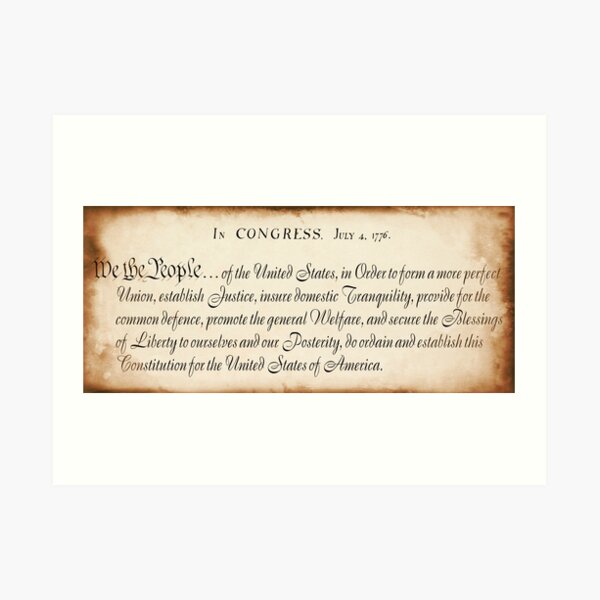 In CONGRESS. July 4, 1776.
We the People... of the United States, in Order to form a more perfect
Union, establish Justice, insure domestic Tranquility, provide for the
common defence, promote the general Welfare, and secure the Blessings
of Liberty to ourselves and our Posterity, do ordain and establish this
Constitution for the United States of America.